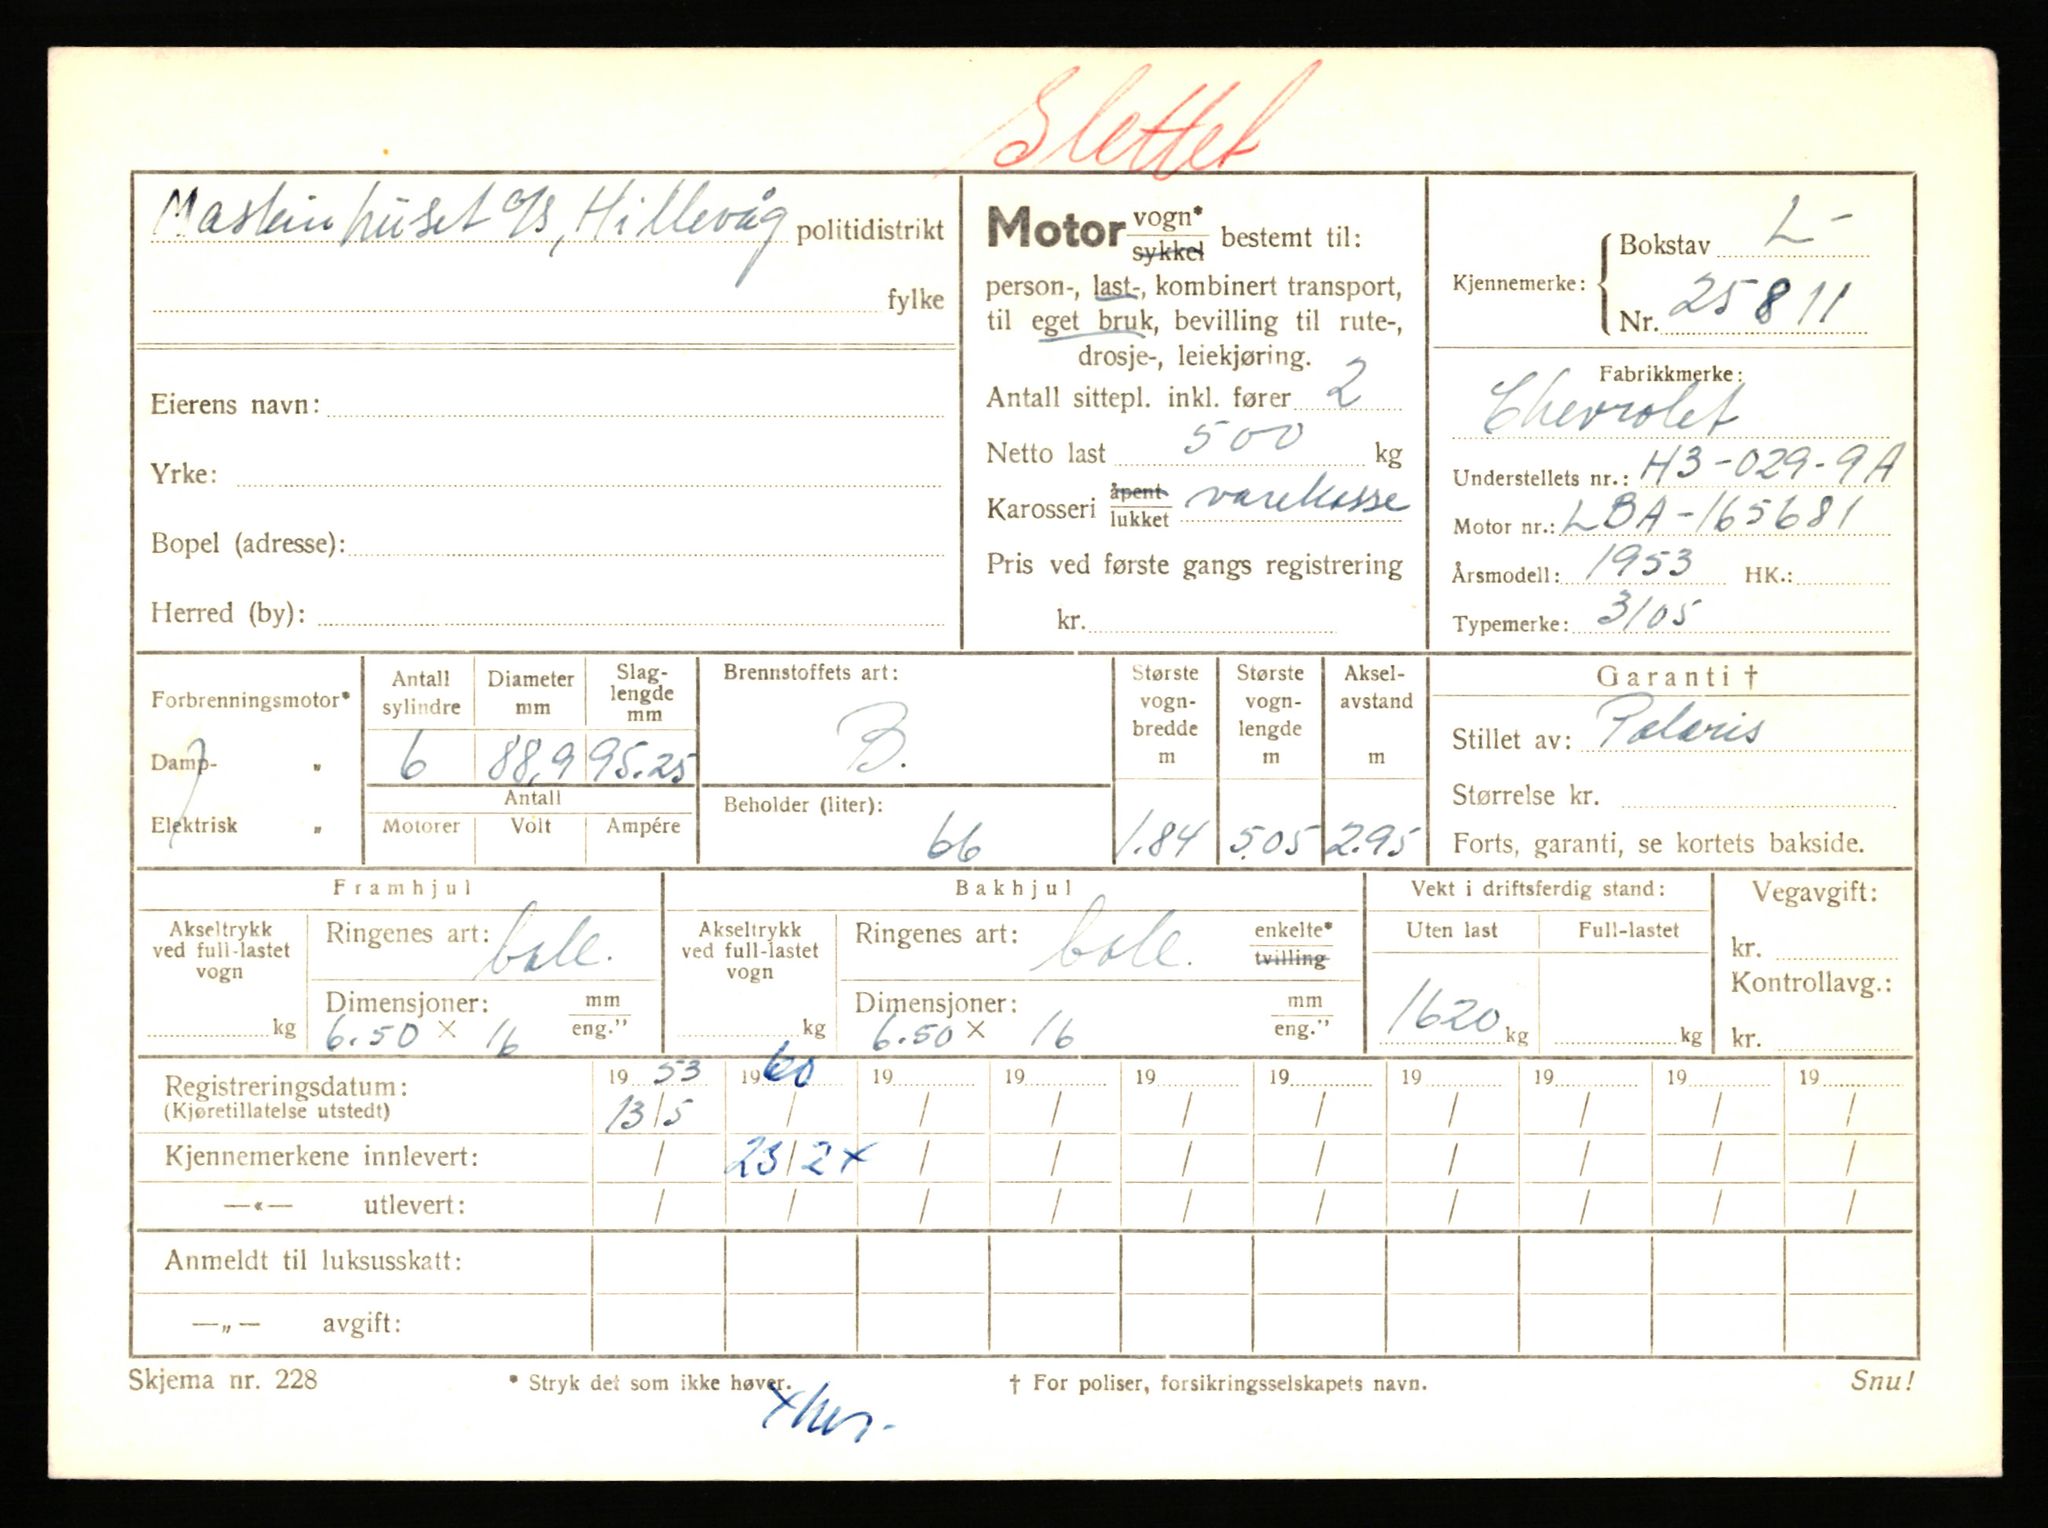 Slettet
Maskinhuset a/s, Hillevåg politidistrikt
fylke
Eierens navn:
Yrke:
Bopel (adresse):
Herred (by):
Motor vogn* sykkel bestemt til:
person-, last-, kombinert transport,
til eget bruk, bevilling til rute-,
drosje-, leiekjøring.
Antall sittepl. inkl. fører 2
Netto last 500 kg
Karosseri åpent lukket varekasse
Pris ved første gangs registrering
kr.
Kjennemerke: Bokstav L-
Nr. 25811
Fabrikkmerke:
Chevrolet
Understellets nr.: H3-029-9A
Motor nr.: LBA-165681
Årsmodell: 1953 HK.:
Typemerke: 3105
Forbrenningsmotor*
Damp- „
Elektrisk „
Antall sylindre Diameter mm Slaglengde mm
6 88,9 95.25
Antall
Motorer Volt Ampére
Brennstoffets art:
B.
Beholder (liter):
66
Største vognbredde m
1.84
Største vognlengde m
5.05
Akselavstand m
2.95
Garanti †
Stillet av: Polaris
Størrelse kr.
Forts, garanti, se kortets bakside.
Framhjul
Akseltrykk ved full-lastet vogn
kg
Ringenes art:
Dimensjoner: mm eng."
6.50 × 16
Bakhjul
Akseltrykk ved full-lastet vogn
kg
Ringenes art: enkelte* tvilling
Dimensjoner: mm eng."
6.50 × 16
Vekt i driftsferdig stand:
Uten last Full-lastet
1620 kg kg
Vegavgift:
kr.
Kontrollavg.:
kr.
Registreringsdatum: 19 53 19 60 19 19 19 19 19 19 19 19
(Kjøretillatelse utstedt) 13/5 / / / / / / / / /
Kjennemerkene innlevert: / 23/2 x / / / / / / / /
—«— utlevert: / / / / / / / / / /
Anmeldt til luksusskatt:
—„— avgift:
Skjema nr. 228 * Stryk det som ikke høver. † For poliser, forsikringsselskapets navn. Snu!